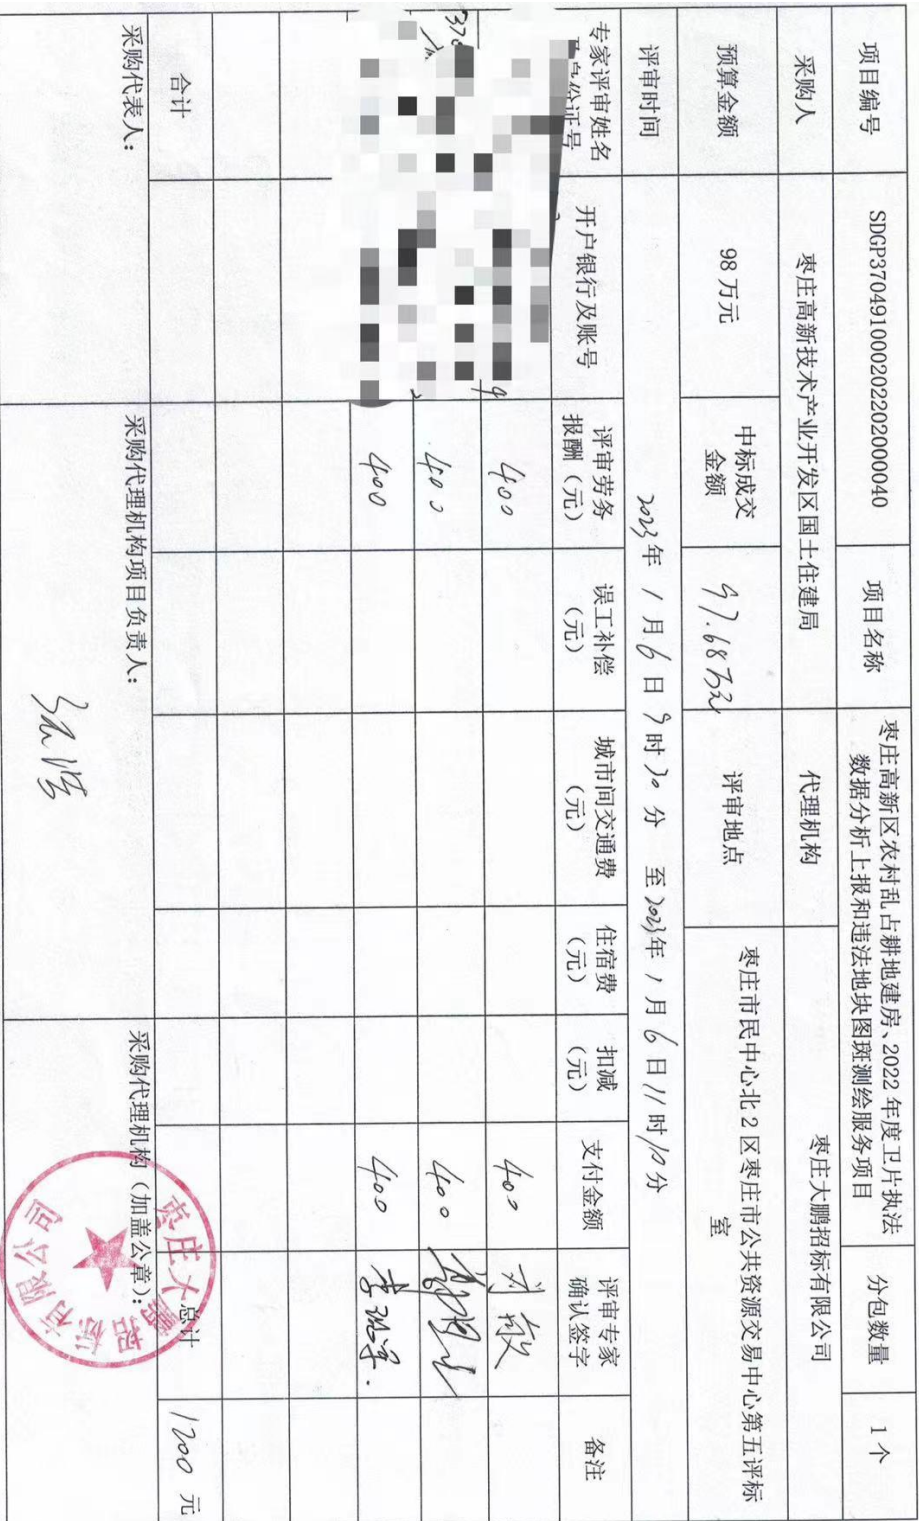 项目编号 SDGP370491000202202000040 项目名称 枣庄高新区农村乱占耕地建房、2022年度卫片执法
数据分析上报和违法地块图斑测绘服务项目 分包数量 1个
采购人 枣庄高新技术产业开发区国土住建局 代理机构 枣庄大鹏招标有限公司
预算金额 98万元 中标成交
金额 97.68万元 评审地点 枣庄市民中心北2区枣庄市公共资源交易中心第五评标
室
评审时间 2023年1月6日9时30分 至2023年1月6日11时10分
专家评审姓名
身份证号 开户银行及账号 评审劳务
报酬（元） 误工补偿
（元） 城市间交通费
（元） 住宿费
（元） 扣减
（元） 支付金额 评审专家
确认签字 备注
400 400 刘敏
400 400
370 400 400
合计 总计 1200元
采购代表人： 采购代理机构项目负责人： 采购代理机构（加盖公章）：
枣庄大鹏招标有限公司